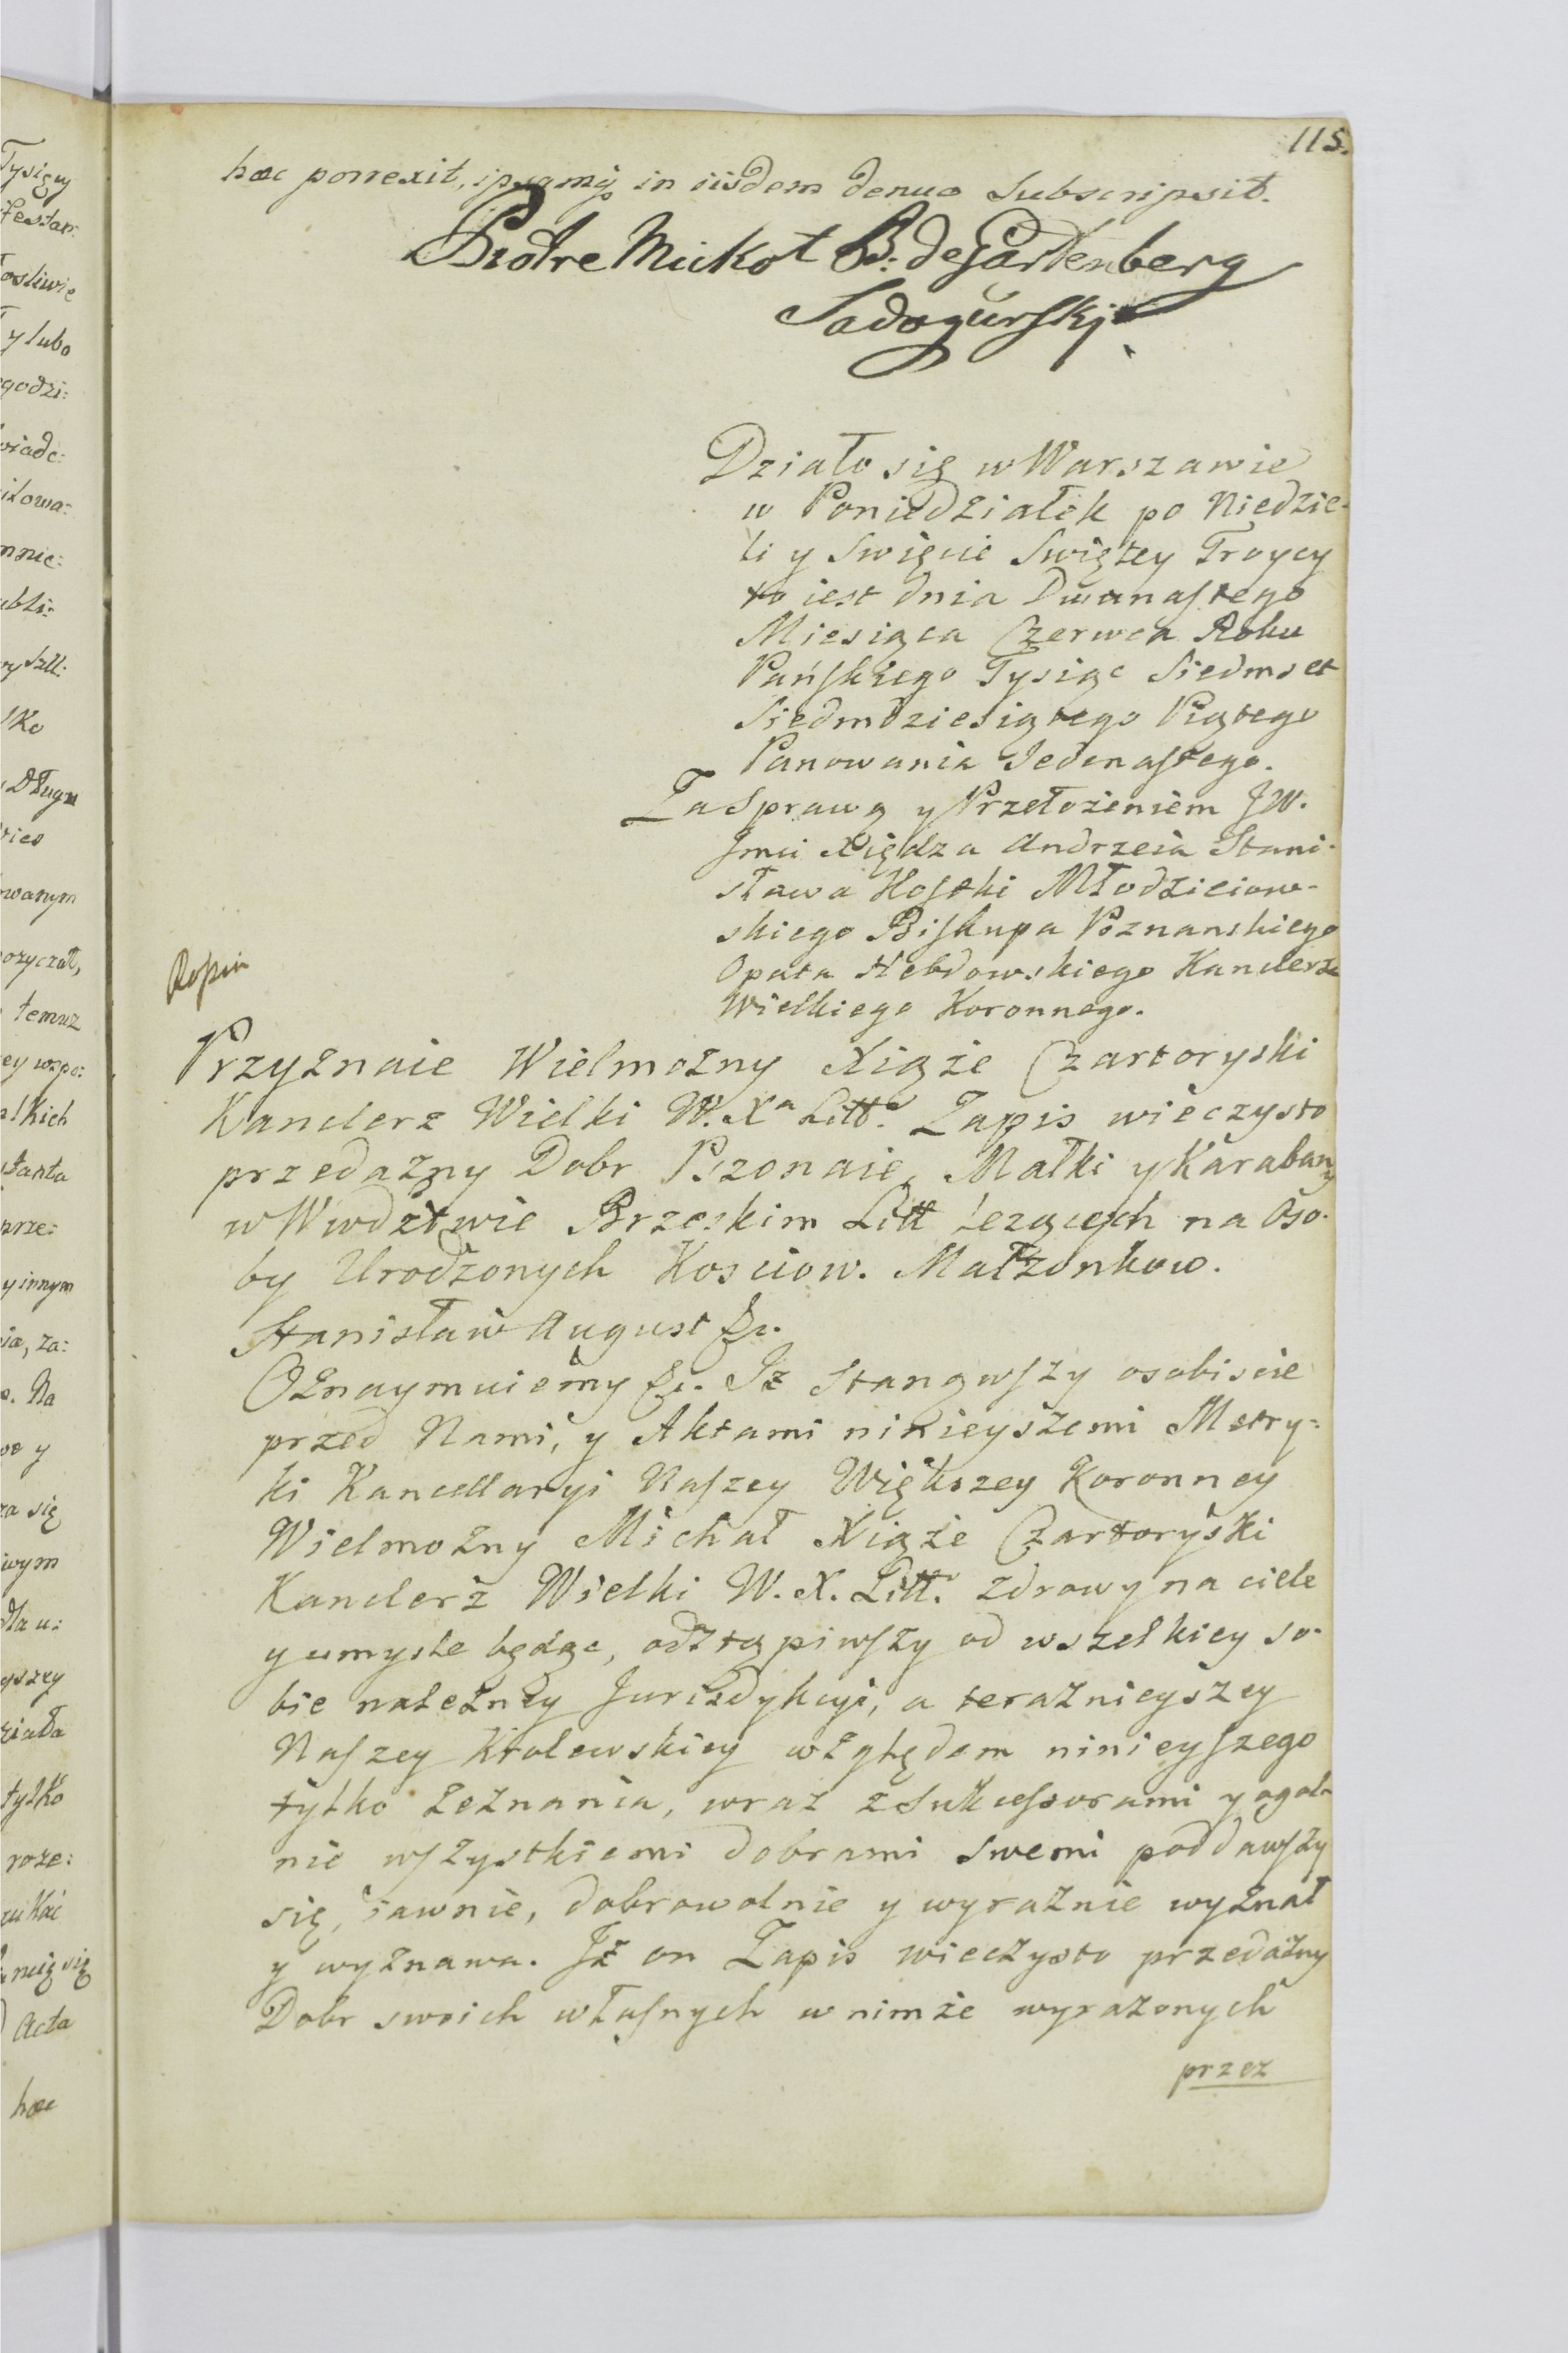 115.
hæc porrexit, ipsamq̃ in iisdem denuo Subscripsit.
Piotre Mickot B: de Gartenberg
Sadogürskj
Działo się w Warszawie
w Poniedziałek po Niedzie-
li y Swięcie Swiętey Troycy
to iest dnia Dwunastego
Miesiąca Czerwca Roku
Pańskiego Tysiąc Siedmset
Siedmdziesiątego Piątego
Panowania Jedenastego.
Za Sprawą y Przełożeniem JW.
Jmci Xiędza Andrzeia Stani-
sława Kostki Młodzieiow-
skiego Biskupa Poznanskiego
Opata Hebdowskiego Kanclerza
Wielkiego Koronnego.
Przyznaie Wielmożny Xiąże Czartoryski
Kanclerz Wielki W. Xa Litt: Zapis wieczysto
przedażny Dobr Pszonaie, Małki y Karabany
w Wwdztwie Brzeskim Litt leżących na Oso-
by Urodzonych Kosciow. Małżonkow.
Stanisław August &c.
Oznaymuiemy &c. Iż Stanąwszy osobiscie
przed Nami, y Aktami ninieyszemi Metry-
ki Kancellaryi Naszey Większey Koronney
Wielmożny Michał Xiąże Czartoryski
Kanclerz Wielki W. X. Litt. zdrowy na ciele
y umysle będąc, odstąpiwszy od wszelkiey so-
bie należnęy Jurisdykcyi, a teraznieyszey
Naszey Krolewskiey względem ninieyszego
tylko zeznania, wraz z Sukcessorami y ogol-
nie wszystkiemi dobrami swemi poddawszy
się, iawnie, dobrowolnie y wyraźnie wyznał
y wyznawa. Iż on Zapis wieczysto przedażny
Dobr swoich własnych w nimże wyrażonych
przez
Tysięcy
y lubo
godzi:
temuz
ey wspo:
prze:
y innym
ia, za:
ra się
tylko
Acta
hæc